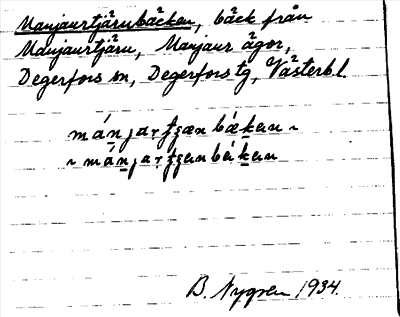 Manjaurtjärnbäcken, bäck från
Manjaurtjärn, Manjaur ägor,
Degerfors sn, Degerfors tg, Västerbl.
mánjarʈʂæn bækan ~
~ mánjarʈʂan bákan
B. Nygren 1934.